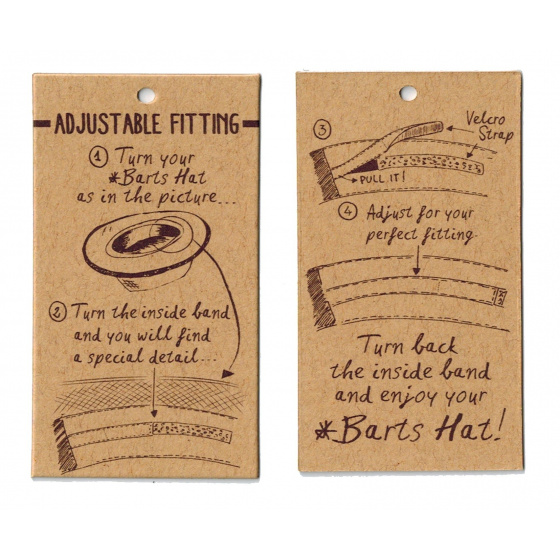 ADJUSTABLE FITTING
1 Turn your
*Barts Hat
as in the picture...
2 Turn the inside band
and you will find
a special detail...
3 Velcro
Strap
PULL IT!
4 Adjust for your
perfect fitting
Turn back
the inside band
and enjoy your
*Barts Hat!